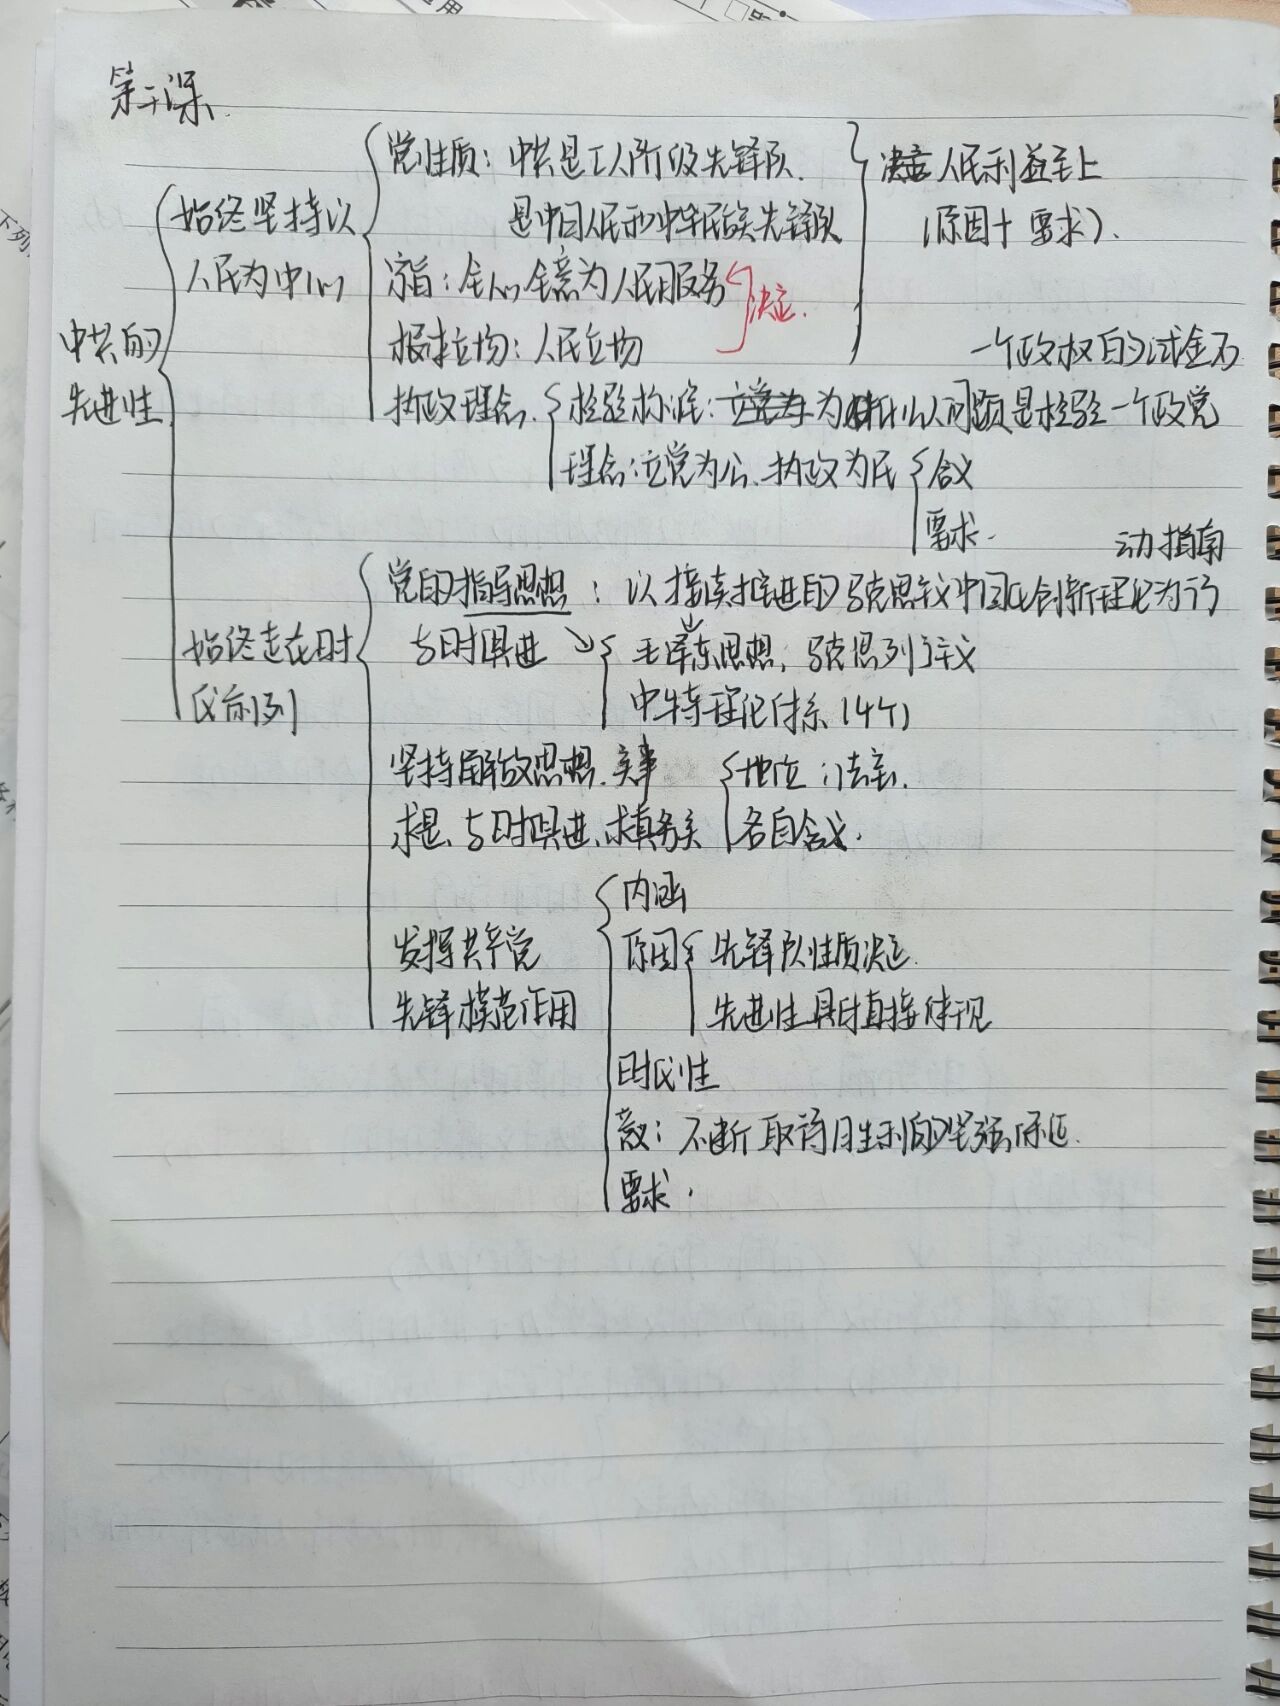 第二课
党性质：中共是工人阶级先锋队.
是中国人民和中华民族先锋队
决定人民利益至上
(原因+要求).
始终坚持以
人民为中心
宗旨：全心全意为人民服务
决定.
根本立场：人民立场
中共的
先进性
一个政权的试金石
执政理念.
检验标准：为什么人问题是检验一个政党
理念：立党为公、执政为民
含义
要求.
动指南
党的指导思想：以接续推进的马克思主义中国化创新理论为行
与时俱进
毛泽东思想；马克思列主义
中特理论体系(4个)
始终走在时
代前列
坚持解放思想、实事
求是、与时俱进、求真务实
地位：法宝.
各自含义.
发挥共产党
先锋模范作用
内涵
原因
先锋队性质决定.
先进性具时直接体现
时代性
意义：不断取得胜利的坚强保证.
要求.